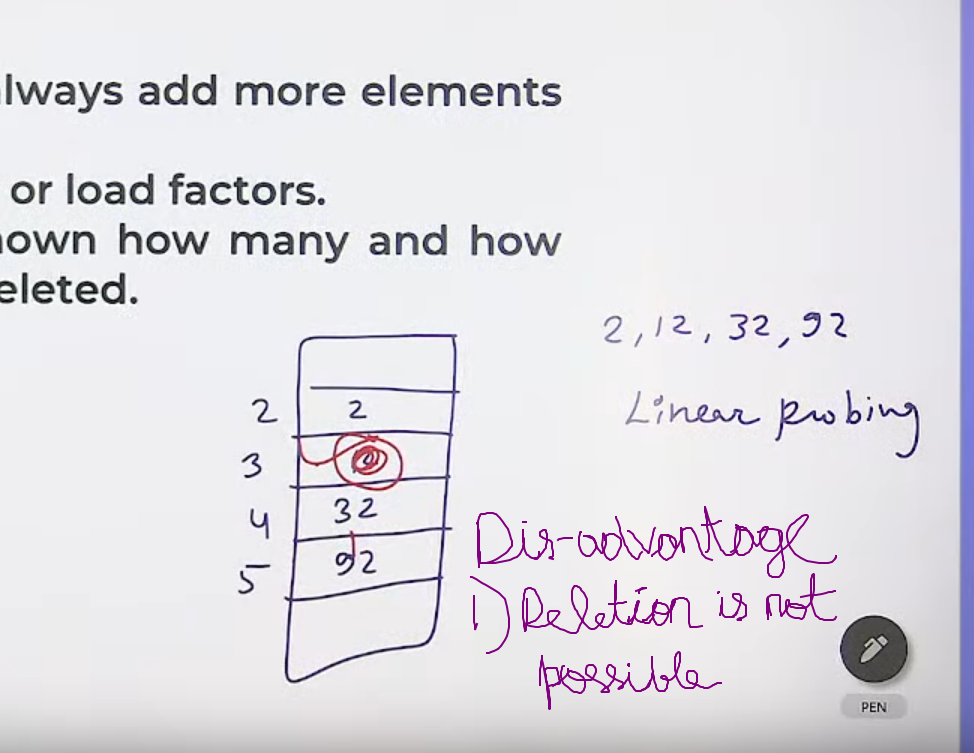 always add more elements
or load factors.
nown how many and how
eleted.
2, 12, 32, 92
Linear probing
2 2
3
4 32
5 92
Dis-advantage
1) Deletion is not
possible
PEN